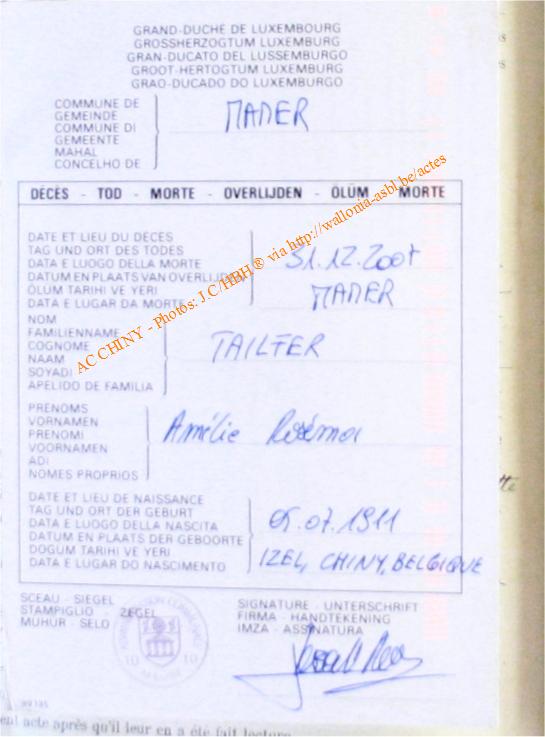 GRAND-DUCHE DE LUXEMBOURG
GROSSHERZOGTUM LUXEMBURG
GRAN-DUCATO DEL LUSSEMBURGO
GROOT-HERTOGTUM LUXEMBURG
GRAO-DUCADO DO LUXEMBURGO
COMMUNE DE
GEMEINDE
COMMUNE DI
GEMEENTE
MAHAL
CONCELHO DE
MAMER
DÉCÈS - TOD - MORTE - OVERLIJDEN - ÖLÜM - MORTE
DATE ET LIEU DU DECES
TAG UND ORT DES TODES
DATA E LUOGO DELLA MORTE
DATUM EN PLAATS VAN OVERLIJDEN
ÖLUM TARIHI VE YERI
DATA E LUGAR DA MORTE
31.12.2001
MAMER
NOM
FAMILIENNAME
COGNOME
NAAM
SOYADI
APELIDO DE FAMILIA
TAILFER
PRENOMS
VORNAMEN
PRENOMI
VOORNAMEN
ADI
NOMES PROPRIOS
Amélie
DATE ET LIEU DE NAISSANCE
TAG UND ORT DER GEBURT
DATA E LUOGO DELLA NASCITA
DATUM EN PLAATS DER GEBOORTE
DOGUM TARIHI VE YERI
DATA E LUGAR DO NASCIMENTO
05.07.1911
IZEL, CHINY, BELGIQUE
SCEAU - SIEGEL
STAMPIGLIO - ZEGEL
MUHUR - SELO
SIGNATURE - UNTERSCHRIFT
FIRMA - HANDTEKENING
IMZA - ASSINATURA
AC CHINY - Photos: J.C/HBH® via http://wallonia-asbl.be/actes
acte après qu'il leur en a été fait lecture